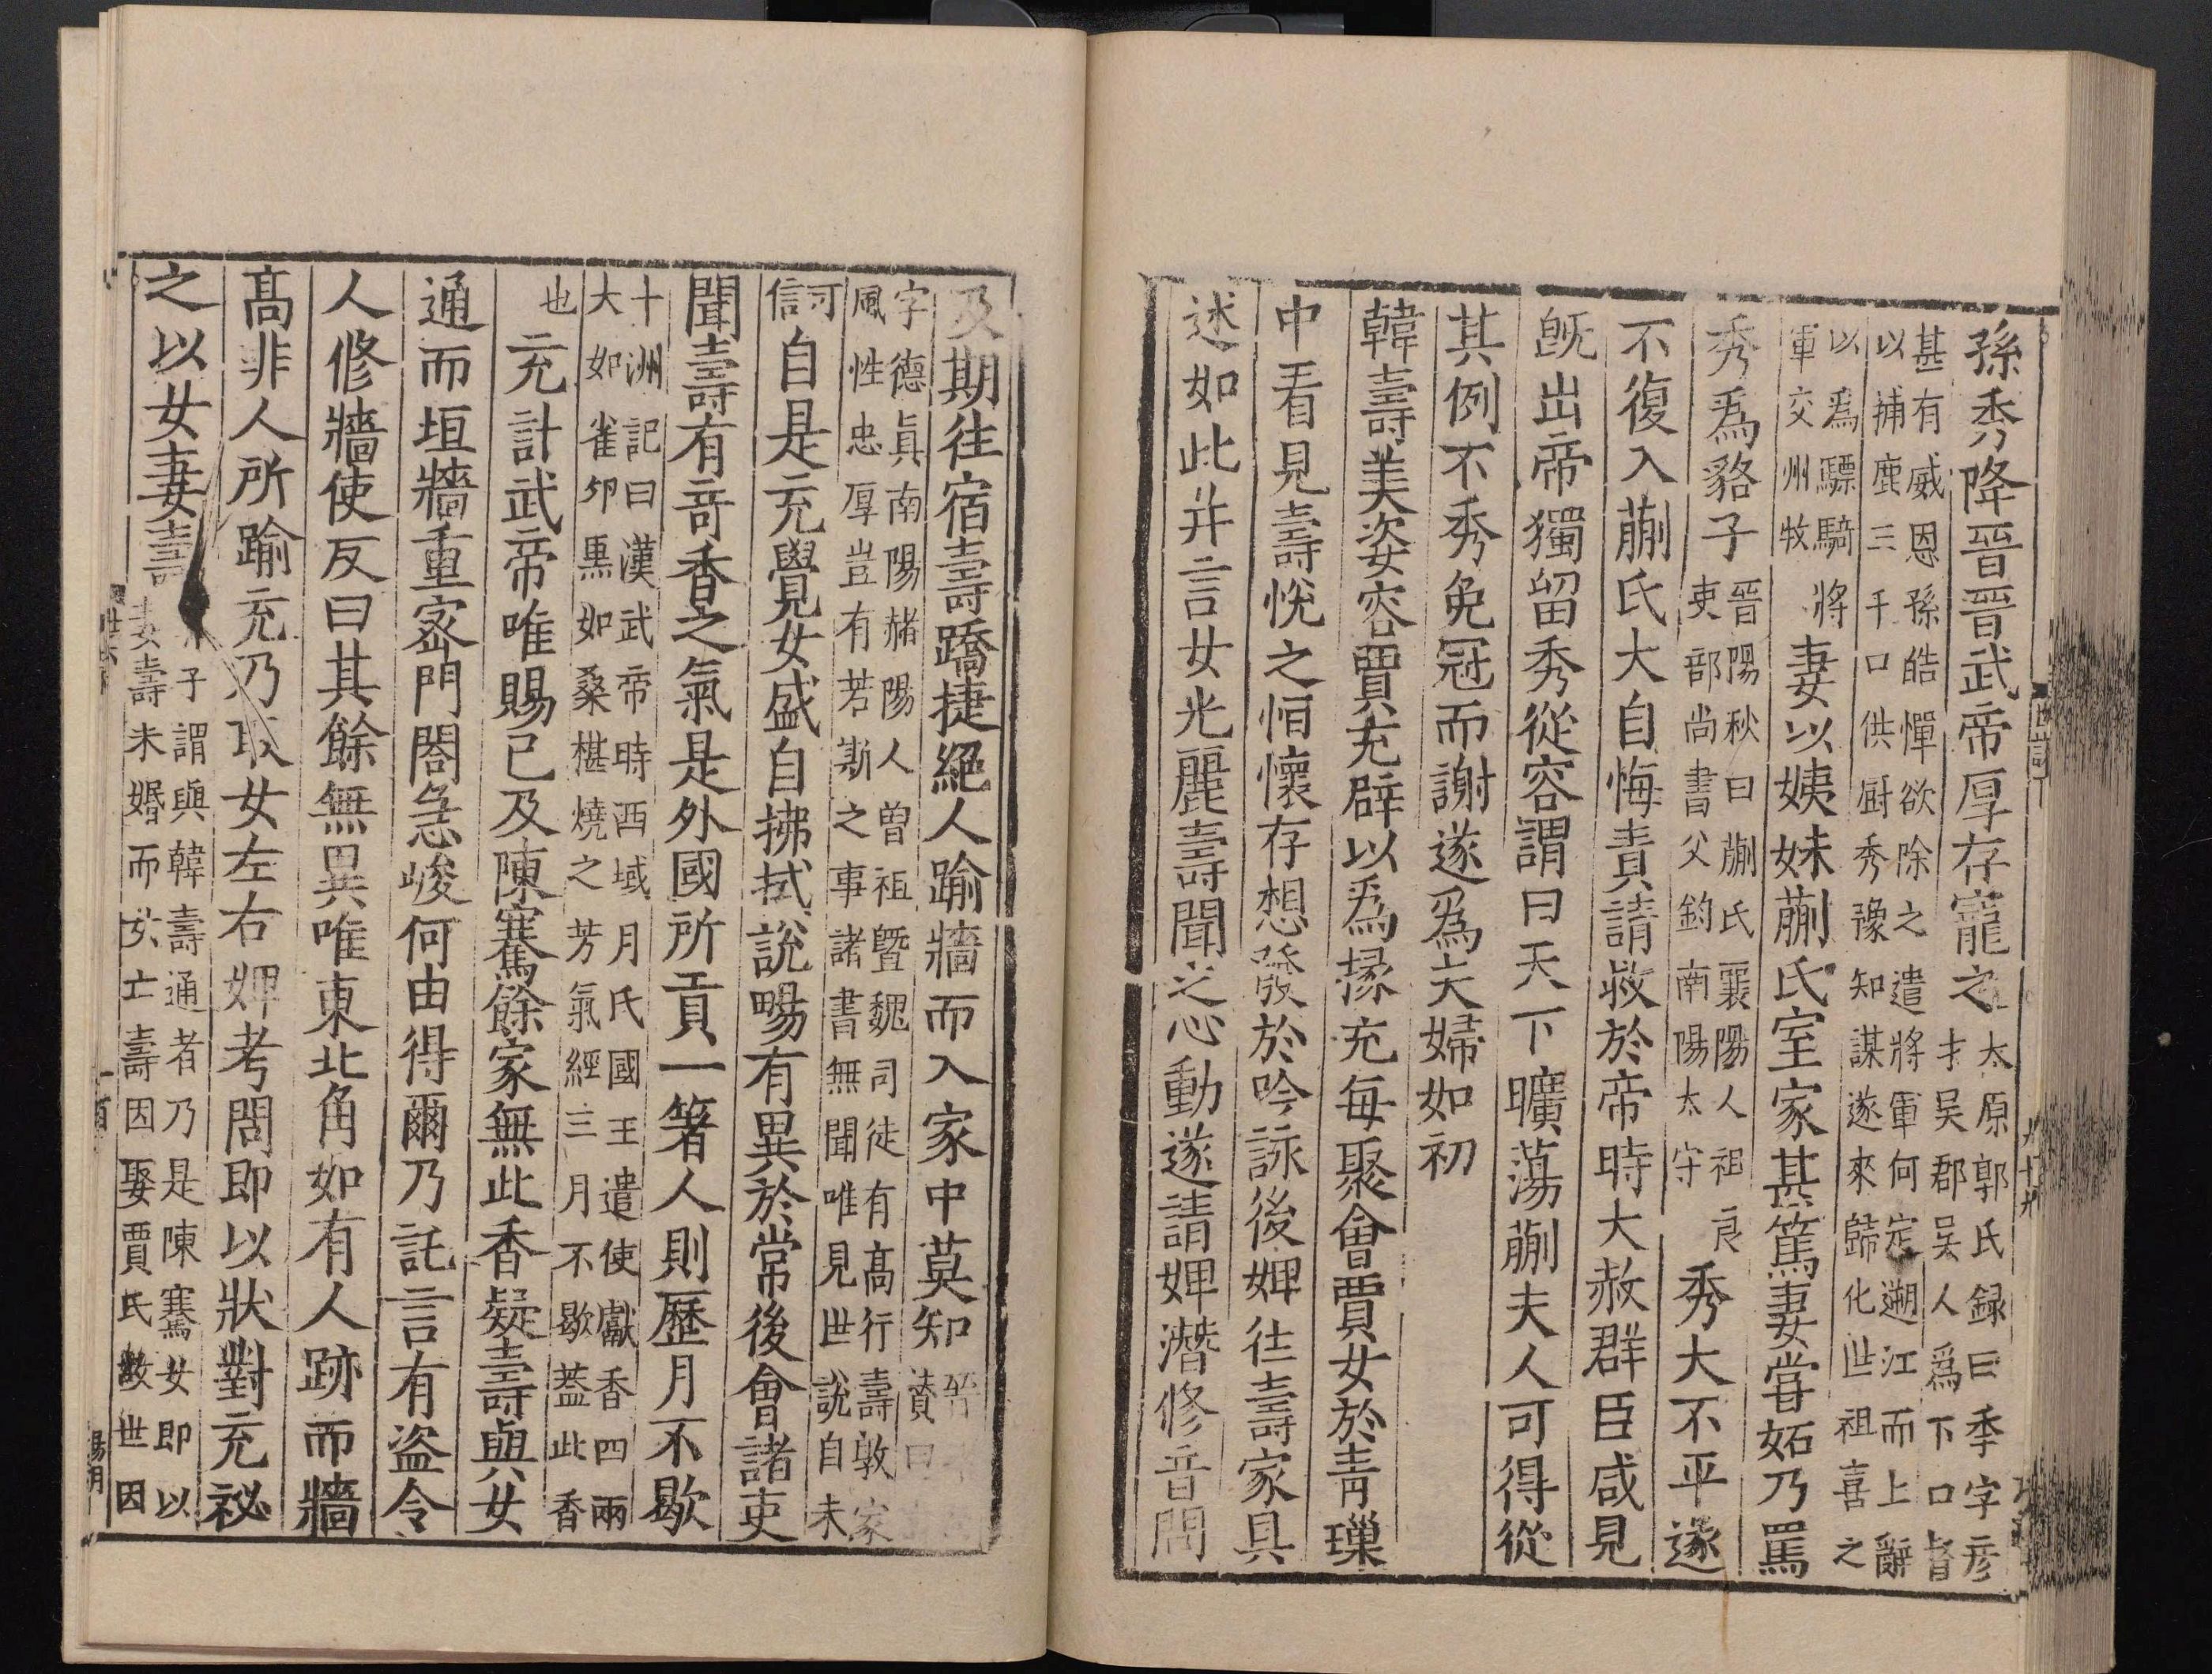 孫秀降晉晉武帝厚存寵之太原郭氏録曰季字彦
才吴郡吴人爲下口督
甚有威恩孫皓憚欲除之遣將軍何定遡江而上辭
以捕鹿三千口供厨秀豫知謀遂來歸化世祖喜之
以爲驃騎將
軍交州牧
妻以姨妹蒯氏室家甚篤妻嘗妬乃罵
秀爲貉子晉陽秋曰蒯氏襄陽人祖良
吏部尚書父鈞南陽太守
秀大不平遂
不復入蒯氏大自悔責請救於帝時大赦群臣咸見
旣出帝獨留秀從容謂曰天下曠蕩蒯夫人可得從
其例不秀免冠而謝遂爲夫婦如初
韓壽美姿容賈充辟以爲掾充每聚會賈女於青璅
中看見壽恱之恒懷存想發於吟詠後婢往壽家具
述如此并言女光麗壽聞之心動遂請婢潛修音問
及期往宿壽蹻捷絕人踰牆而入家中莫知
字德眞南陽赭陽人曽祖曁魏司徒有髙行壽敦家
風性忠厚豈有若斯之事諸書無聞唯見世說自未
可
信
自是充覺女盛自拂拭說暢有異於常後會諸吏
聞壽有奇香之氣是外國所貢一著人則歷月不歇
十洲記曰漢武帝時西域月氏國王遣使獻香四兩
大如雀卵黒如桑椹燒之芳氣經三月不歇蓋此香
也
充計武帝唯賜己及陳騫餘家無此香疑壽與女
通而垣牆重宻門閤急峻何由得爾乃託言有盗令
人修牆使反曰其餘無異唯東北角如有人跡而牆
髙非人所踰充乃取女左右婢考問即以狀對充祕
之以女妻壽
子謂與韓壽通者乃是陳騫女即以
妻壽未婚而女亡壽因娶賈氏故世因